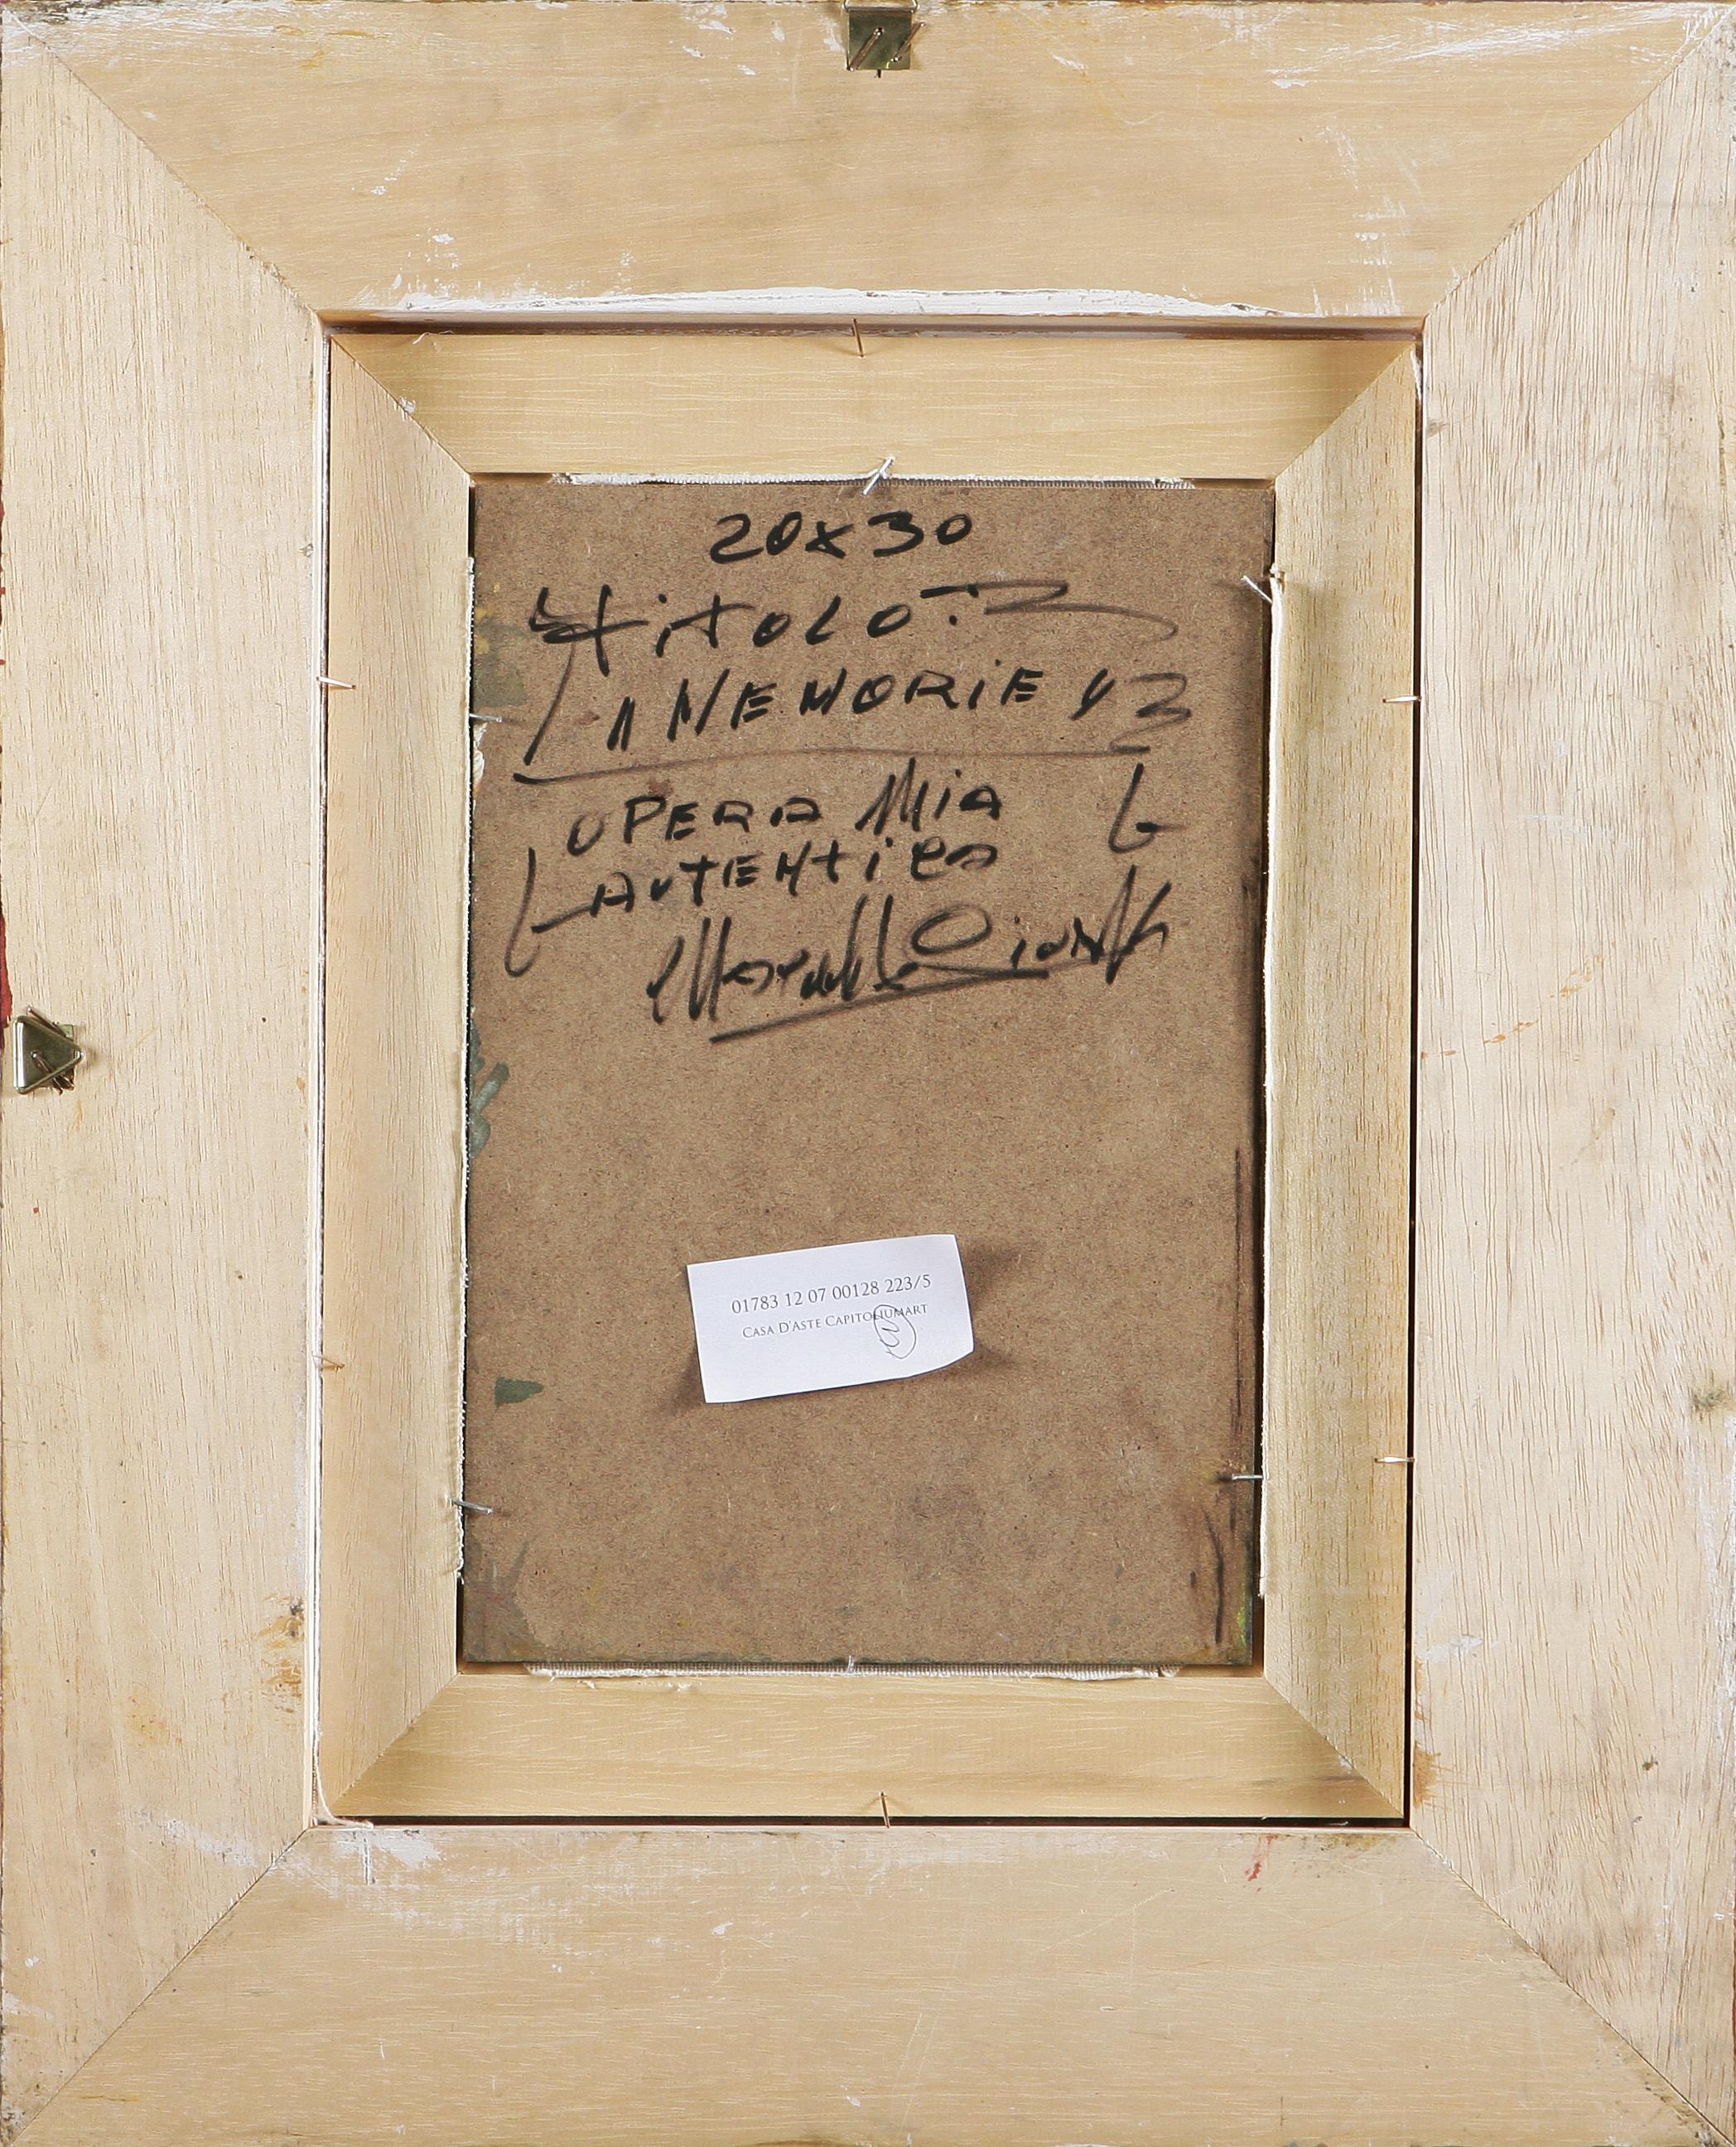 20x30
titolo:
"MEMORIE"
OPERA MIA
AUTENTICA
01783 12 07 00128 223/5
CASA D'ASTE CAPITOLIUMART